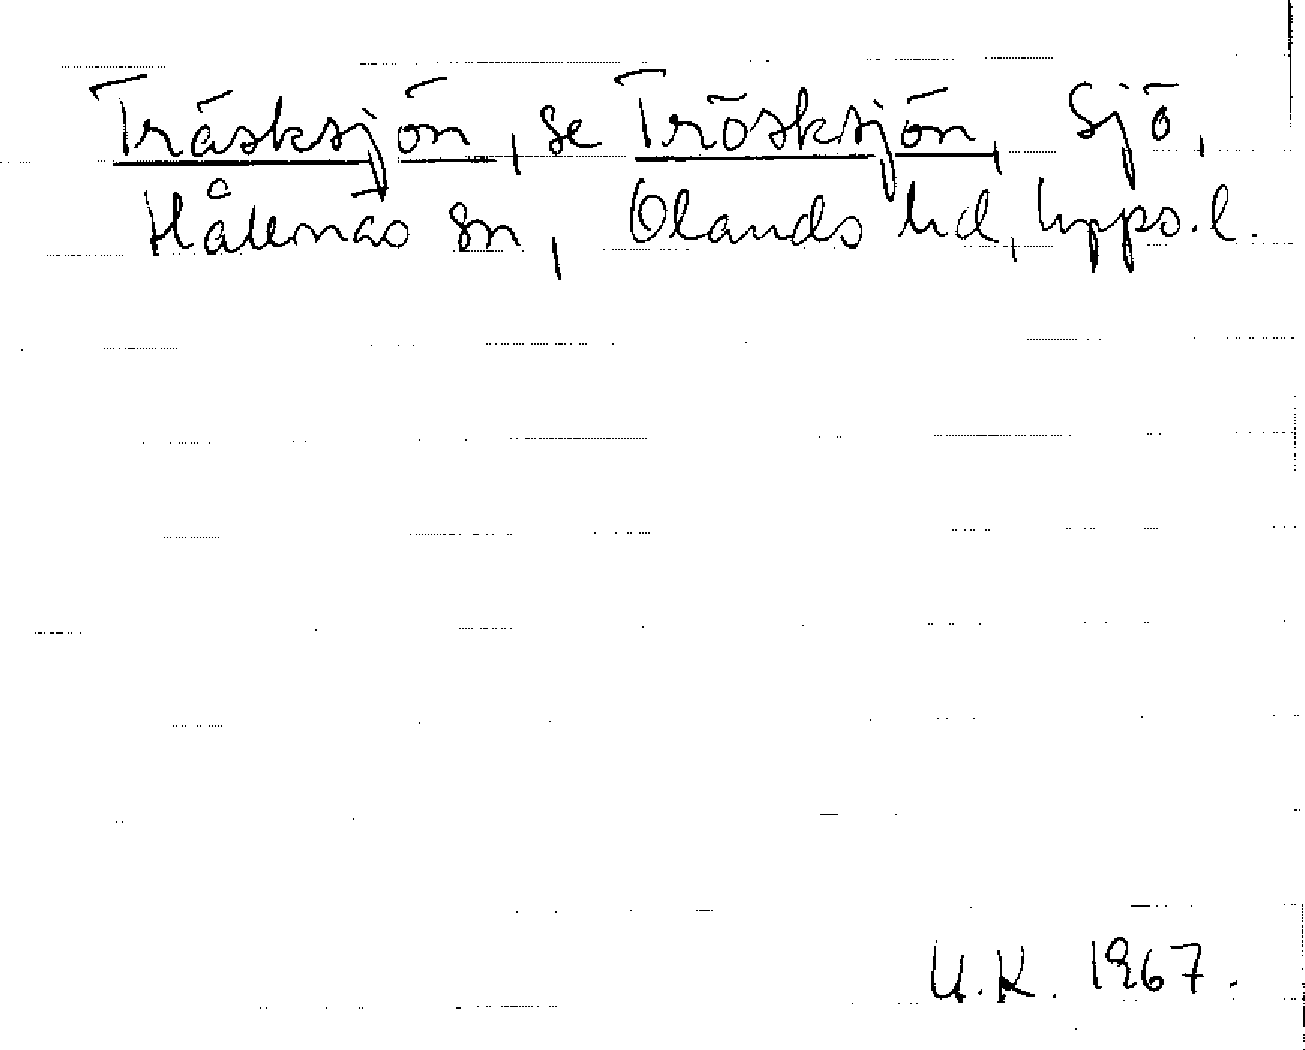 Träsksjön, se Trösksjön, Sjö,
Hållnäs sn, Olands hd, Upps. l.
U.K. 1967.